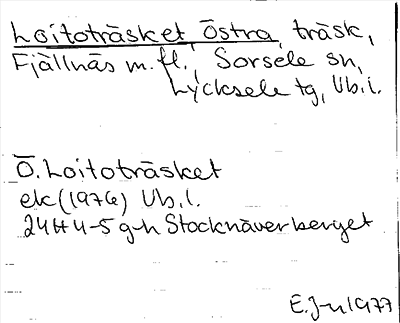 Loitoträsket Östra, träsk,
Fjällnäs m.fl., Sorsele sn,
Lycksele tg, Vb.l.
Ö. Loitoträsket
ek (1976) Vb.l.
24H 4-5 g-h Stocknäverberget
E.J-n 1977